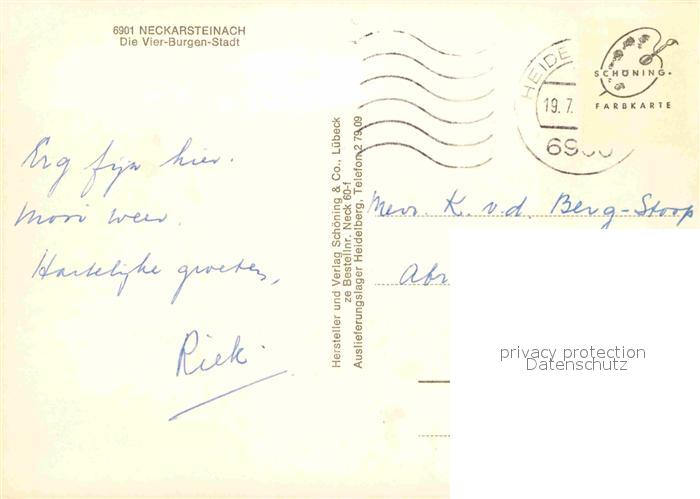 6901 NECKARSTEINACH
Die Vier-Burgen-Stadt
HEIDE
19. 7.
6900
SCHÖNING
FARBKARTE
Erg fijn hier.
Mooi weer.
Hartelijke groeten,
Riek.
Hersteller und Verlag Schöning & Co., Lübeck
ze Bestellnr. Neck 60-f
Auslieferungslager Heidelberg, Telefon 2 79 09
Mevr. K. v.d. Berg-Stoop
Abr
privacy protection
Datenschutz